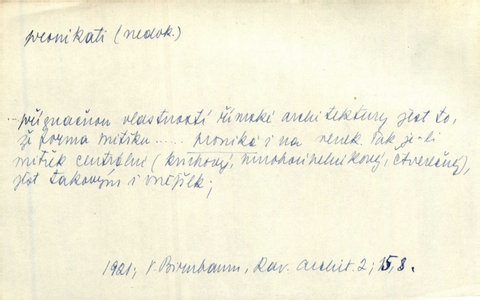 pronikati (nedok.)
příznačnou vlastností římské architektury jest to,
že forma vnitřku ...... proniká i na venek. Jak je-li
vnitřek centrální (kruhový, mnohoúhelníkový, čtverečný),
jest takovým i vnějšek;
1921, V. Birnbaum, Rav. archit. 2; 15, 8.